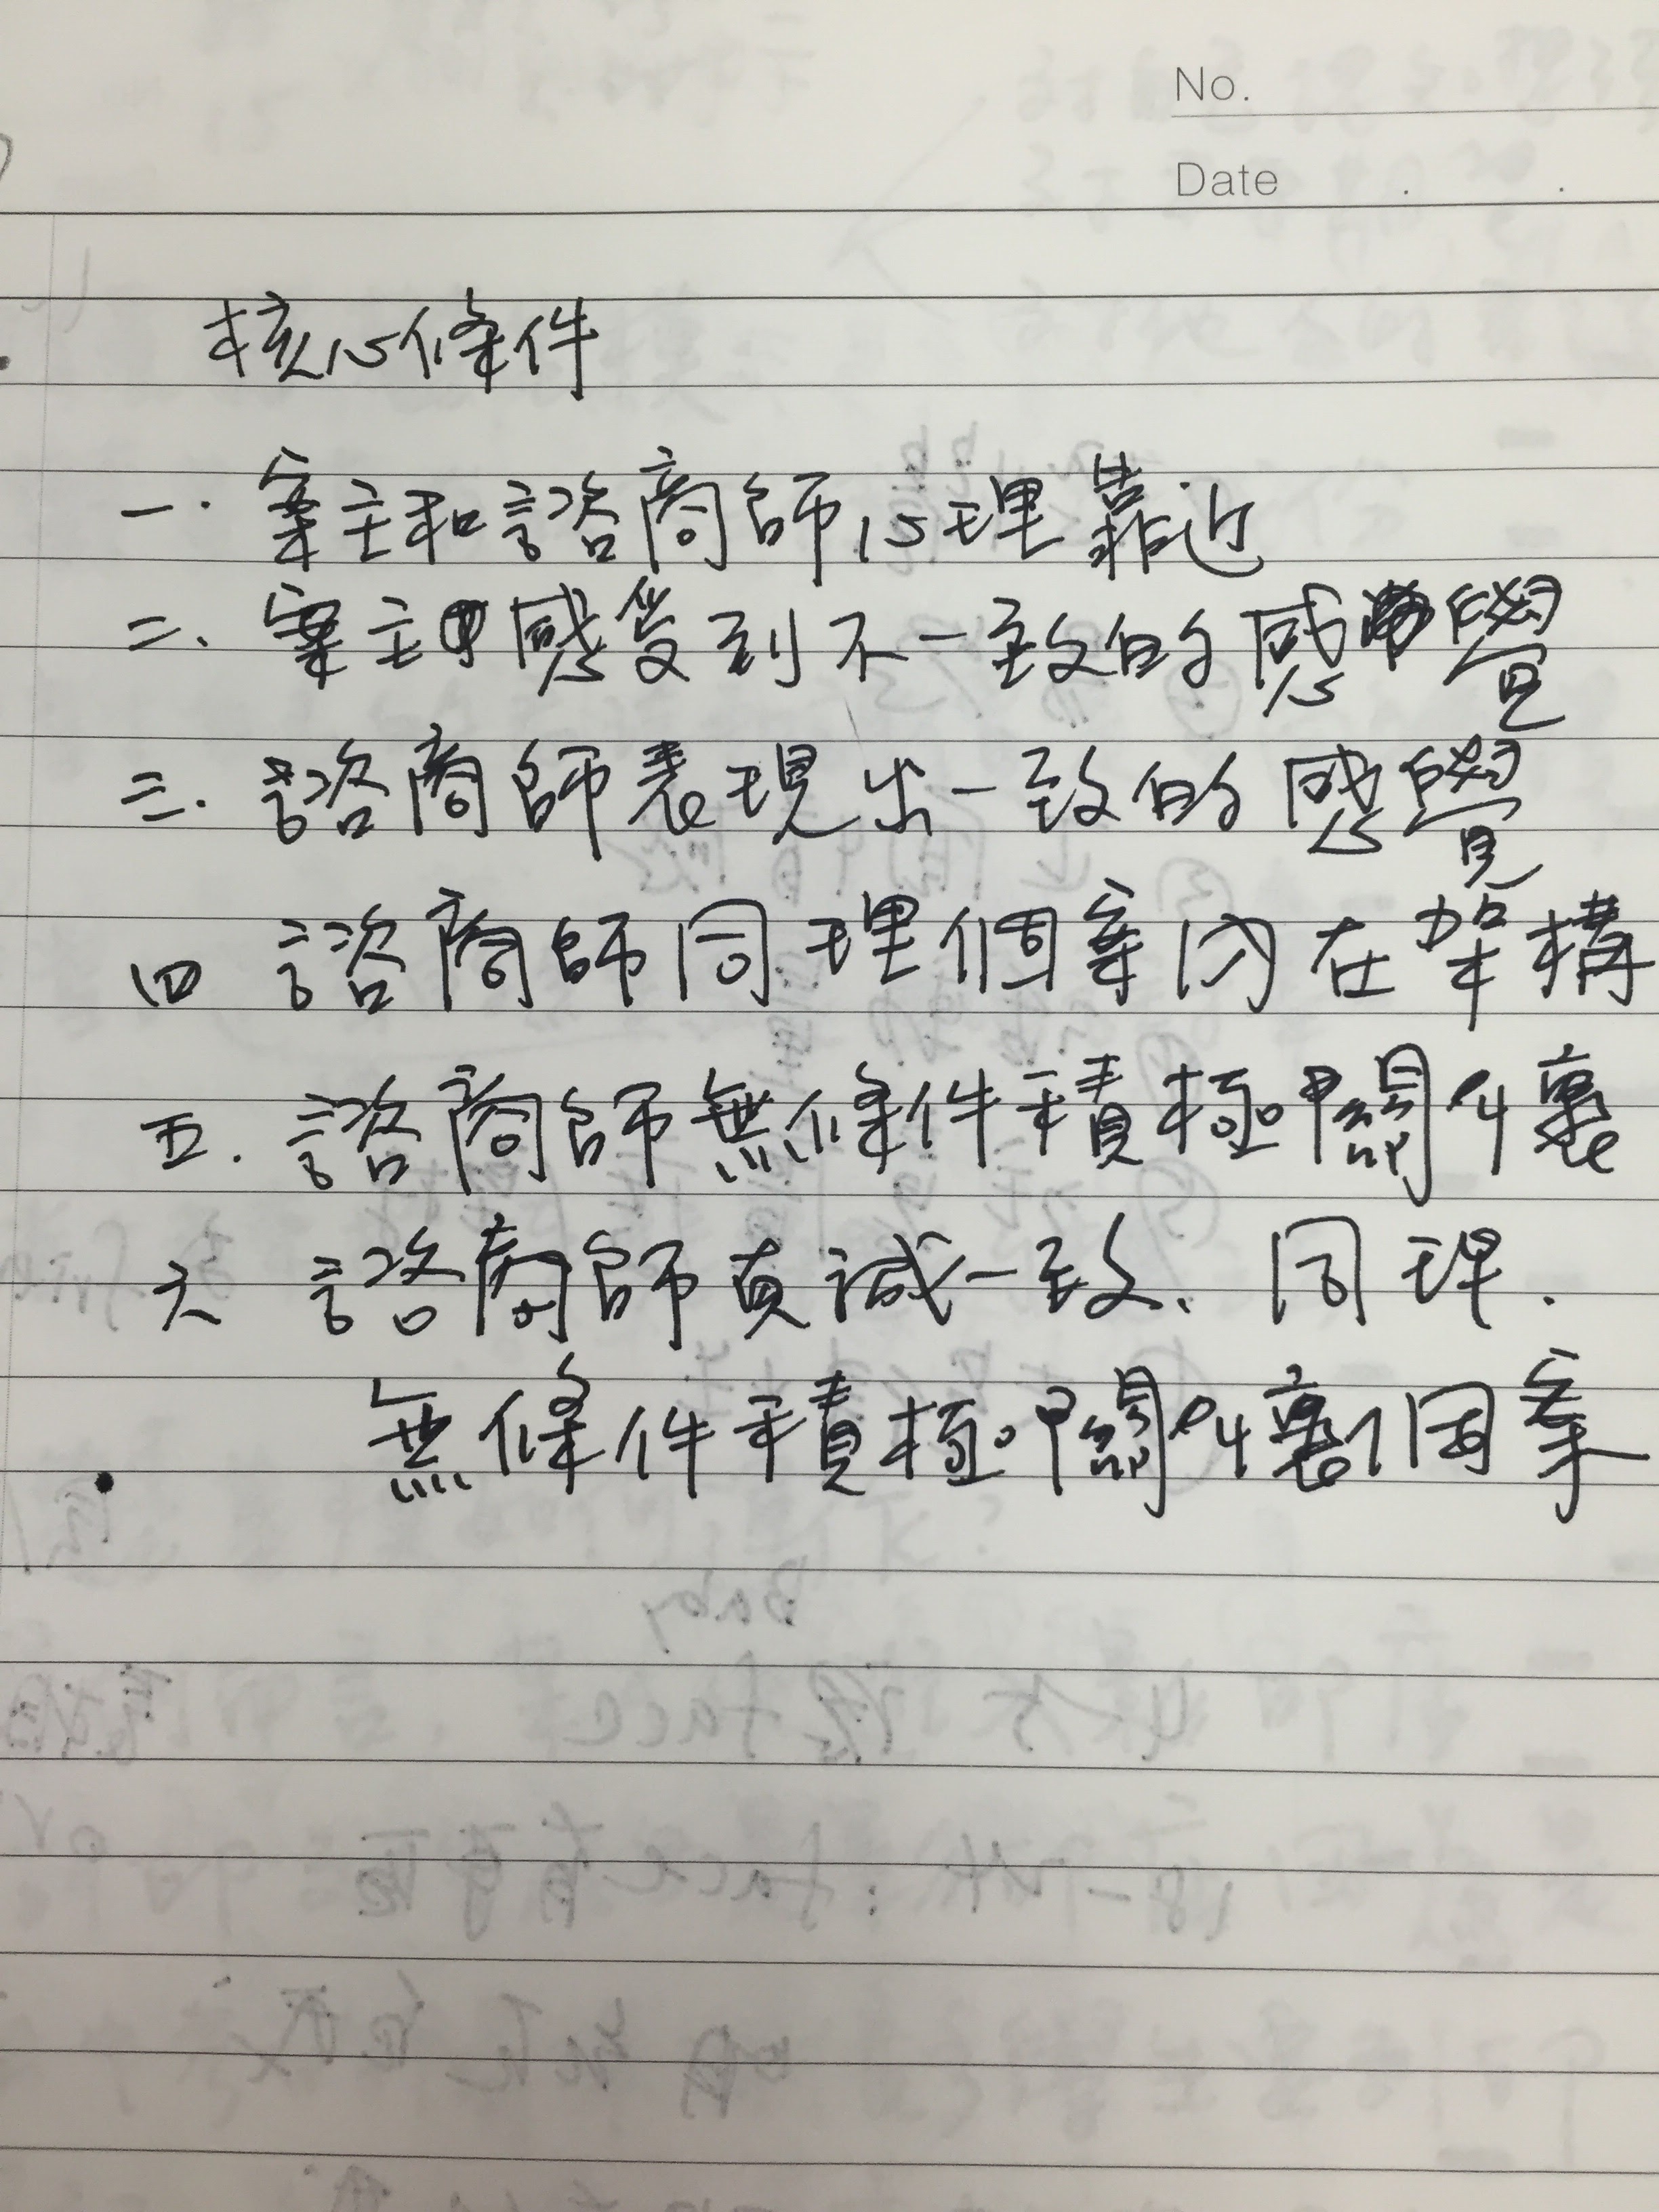 No.
Date
核心條件
一. 案主和諮商師心理靠近
二、案主感受到不一致的感覺
三. 諮商師表現出一致的感覺
四 諮商師同理個案內在架構
五. 諮商師無條件積極關懷
六 諮商師真誠一致、同理.
無條件積極關懷個案